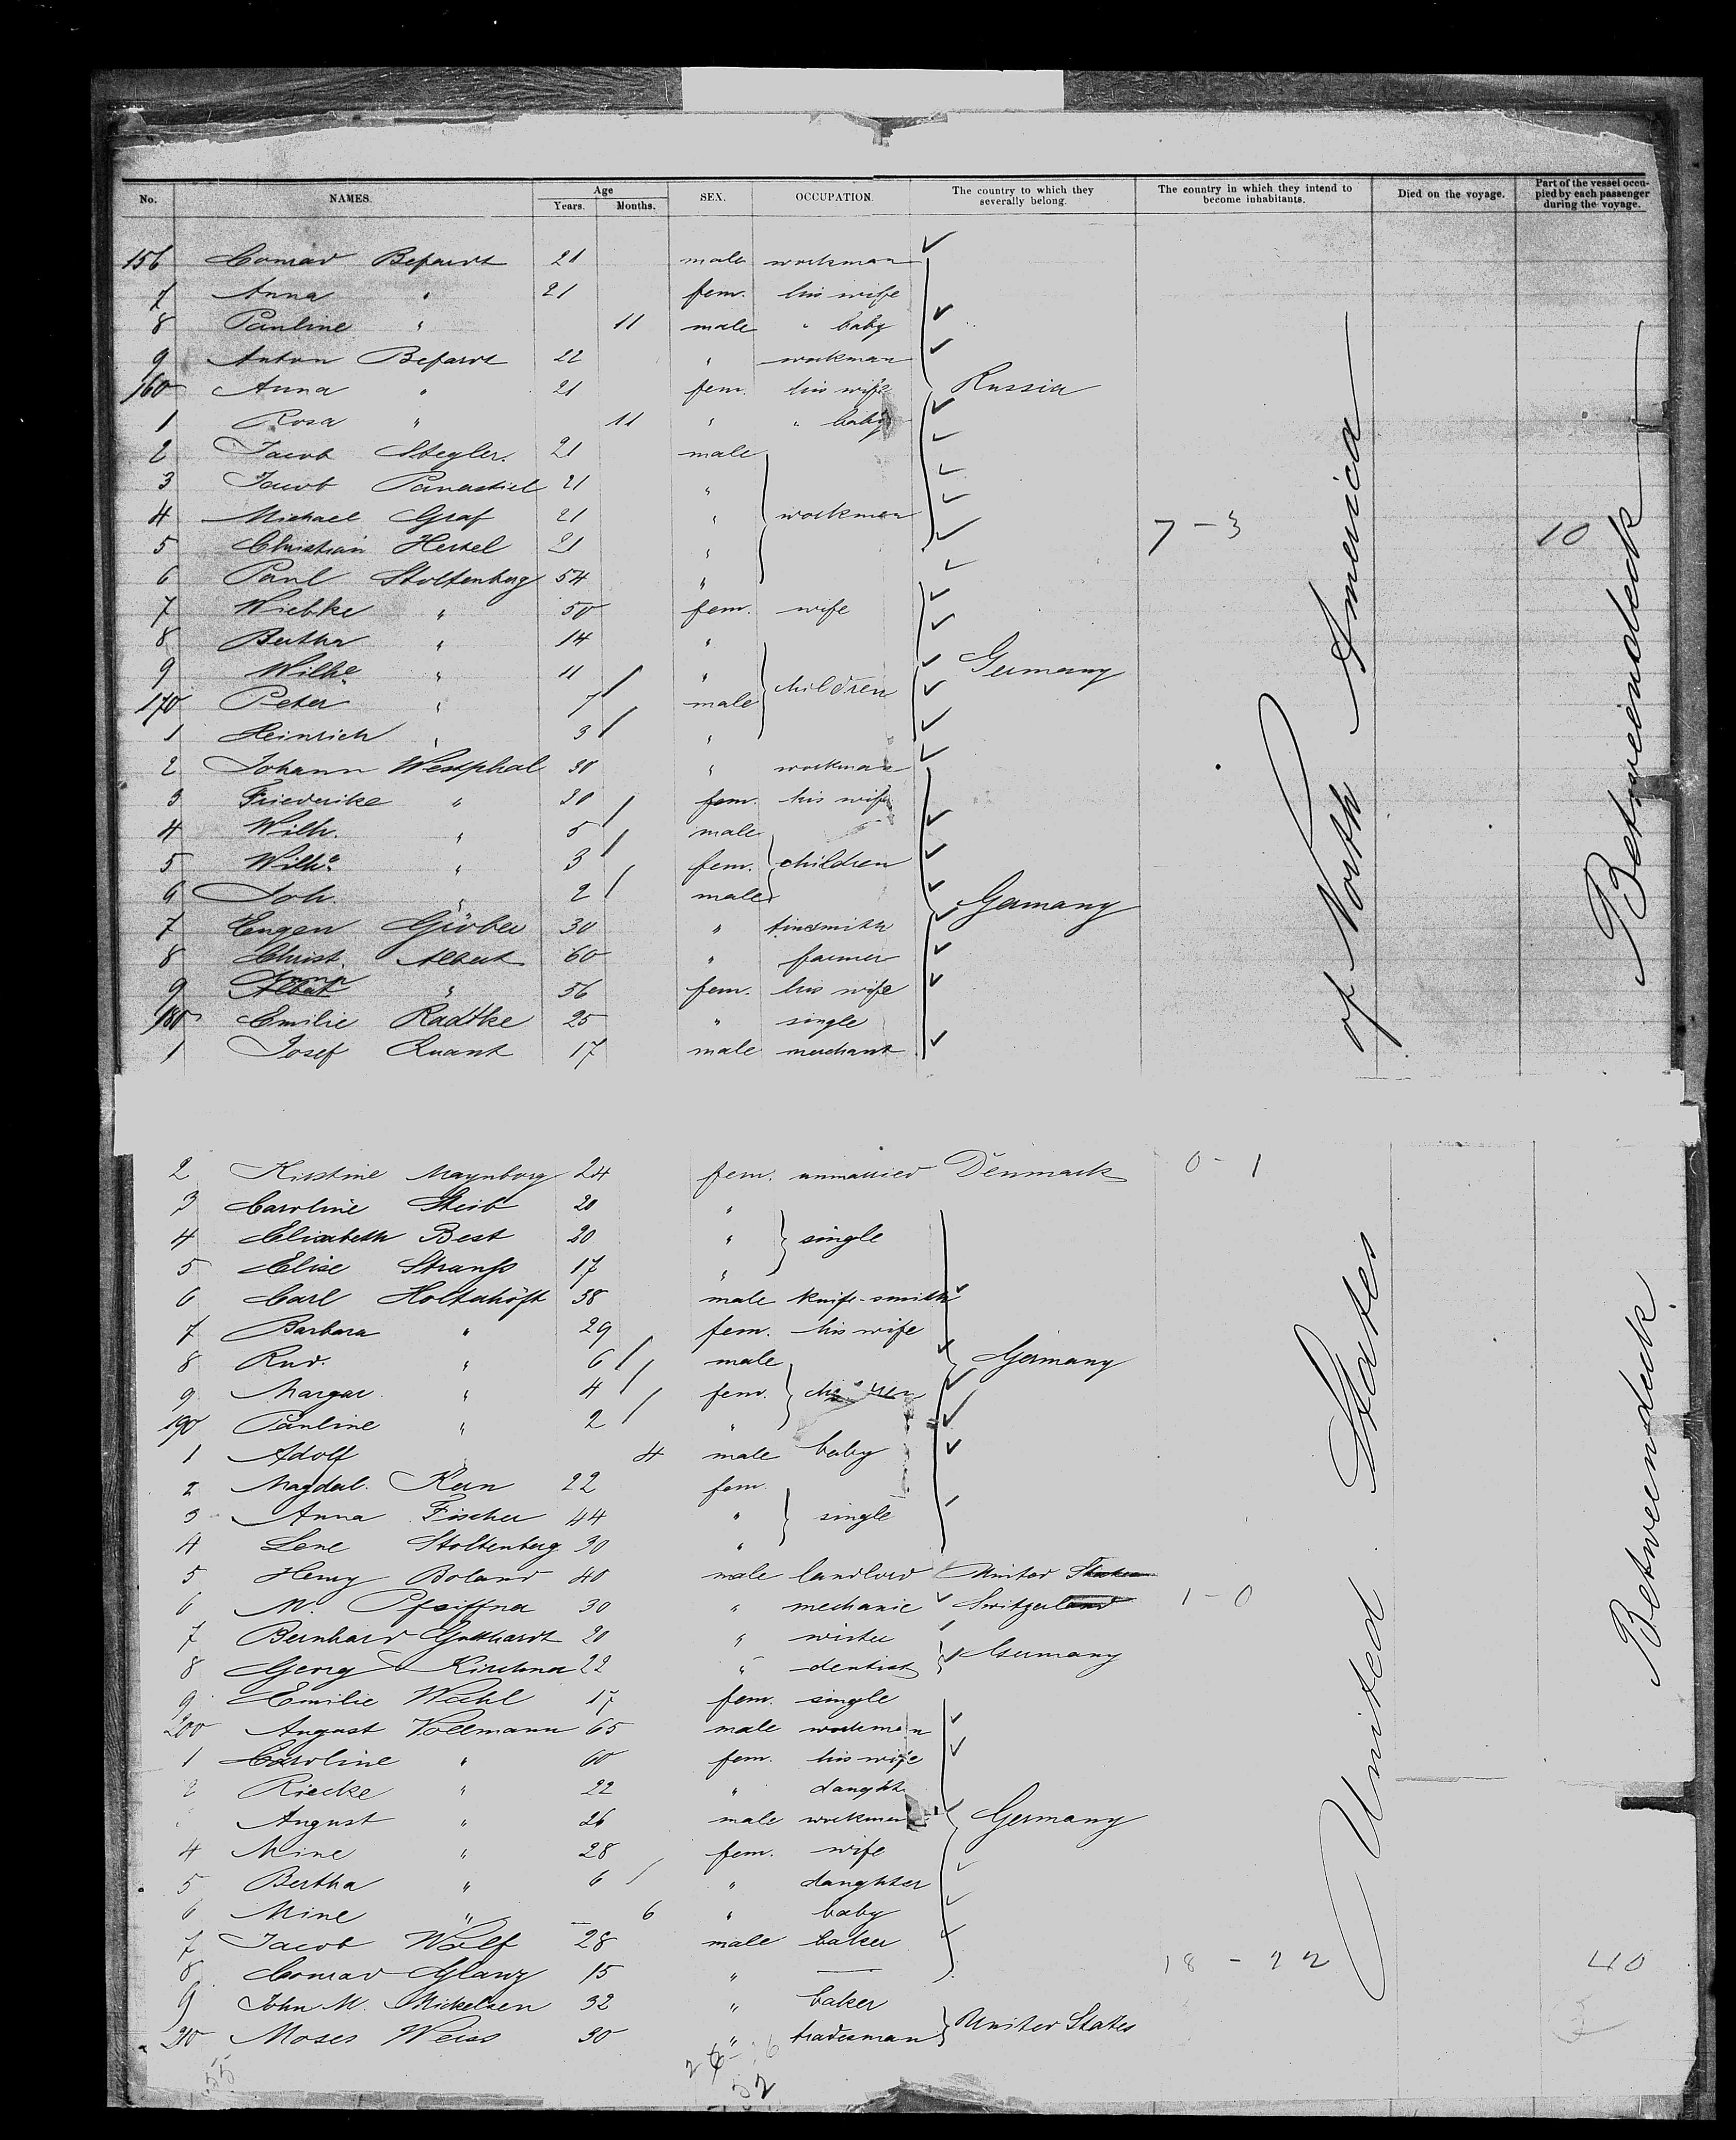 No. NAMES. Age Years. Months. SEX. OCCUPATION. The country to which they severally belong. The country in which they intend to become inhabitants. Died on the voyage. Part of the vessel occupied by each passenger during the voyage.
156 Conrad Befardt 21 male workman
7 Anna " 21 fem. his wife
8 Pauline " 11 male " baby
9 Anton Befardt 22 " workman
160 Anna " 21 fem. his wife Russia
1 Rosa " 11 " " baby
2 Jacob Stegler. 21 male
3 Jacob 21 "
4 Michael Graf 21 " workmen 7 - 3 10
5 Christian Hertel 21 "
6 Paul Stoltenberg 54 "
7 Wiebke " 50 fem. wife
8 Bertha " 14 "
9 Wilhe " 11 " children Germany
170 Peter " 7 male
1 Heinrich " 3 "
2 Johann Westphal 30 " workman
3 Friederike " 30 fem. his wife
4 Wilh. " 5 male
5 Wilhe " 3 fem. children
6 Joh. " 2 male Germany
7 Eugen 30 " tinsmith
8 Christ. Albert 60 " farmer
9 Anna " 56 fem. his wife
180 Emilie Radtke 25 " single
1 Josef Quant 17 male merchant
2 Kirstine Maynborg 24 fem. unmarried Denmark 0 - 1
3 Caroline Steib 20 "
4 Elisabeth Best 20 " single
5 Elise Strauss 17 "
6 Carl Holtzhöft 38 male knife-smith
7 Barbara " 29 fem. his wife
8 Rud. " 6 male Germany
9 Margar. " 4 fem. children
190 Pauline " 2 "
1 Adolf " 4 male baby
2 Magdal. Kern 22 fem.
3 Anna Fischer 44 " single
4 Lene Stoltenberg 30 "
5 Henry Boland 40 male landlord United States
6 M. Pfeiffner 30 " mechanic Switzerland 1 - 0
7 Bernhard Gotthardt 20 "
8 Georg Kirchner 22 " dentist Germany
9 Emilie Wahl 17 fem. single
200 August Vollmann 65 male workman
1 Caroline " 60 fem. his wife
2 Riecke " 22 " daught
August " 26 male workman Germany
4 Mine " 28 fem. wife
5 Bertha " 6 " daughter
6 Mine " 6 " baby
7 Jacob Wolf 28 male baker
8 Conrad Glanz 15 " — 18 - 22 40
9 John M. Mickelsen 32 " baker
210 Moses Weiss 30 " tradesman United States
United States of North America
Betweendeck
Betweendeck
55
52